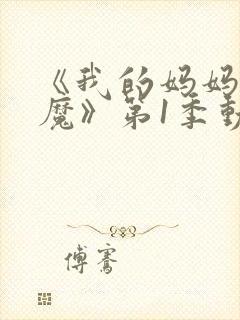 《我的妈妈
魔》第1季動
傅騫